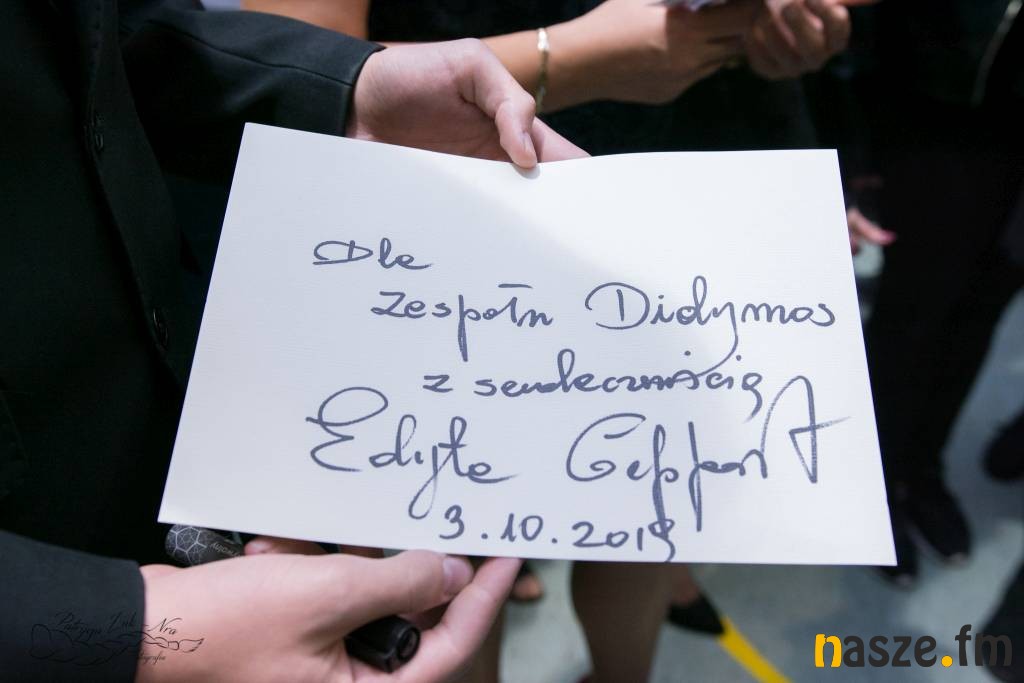 Dla
zespołu Didymos
z serdecznością
Edyta Geppert
3.10.2019
nasze.fm